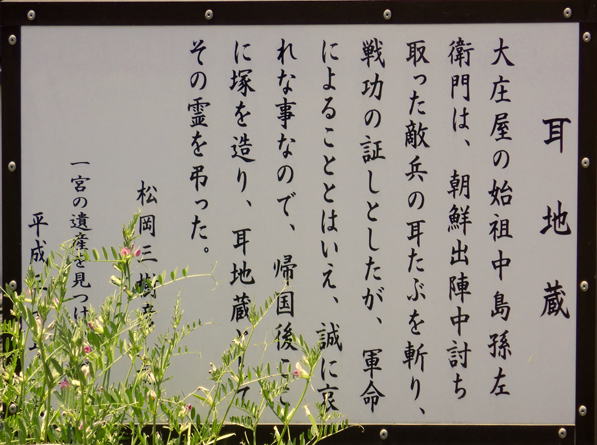 耳地蔵
大庄屋の始祖中島孫左
衛門は、朝鮮出陣中討ち
取った敵兵の耳たぶを斬り、
戦功の証しとしたが、軍命
によることとはいえ、誠に哀
れな事なので、帰国後ここ
に塚を造り、耳地蔵として
その霊を弔った。
松岡三樹彦
一宮の遺産を見つけ
平成